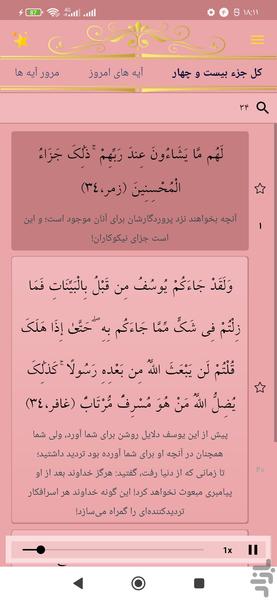 ۱۸:۱۱
87
4G
کل جزء بیست و چهار
آیه های امروز
مرور آیه ها
۳۴
لَهُم مَّا يَشَاءُونَ عِندَ رَبِّهِمْ ۚ ذَٰلِكَ جَزَاءُ
الْمُحْسِنِينَ (زمر،۳۴)
آنچه بخواهند نزد پروردگارشان برای آنان موجود است؛ و این
است جزای نیکوکاران!
۱
وَلَقَدْ جَاءَكُمْ يُوسُفُ مِن قَبْلُ بِالْبَيِّنَاتِ فَمَا
زِلْتُمْ فِي شَكٍّ مِّمَّا جَاءَكُم بِهِ ۖ حَتَّىٰ إِذَا هَلَكَ
قُلْتُمْ لَن يَبْعَثَ اللَّهُ مِن بَعْدِهِ رَسُولًا ۚ كَذَٰلِكَ
يُضِلُّ اللَّهُ مَنْ هُوَ مُسْرِفٌ مُّرْتَابٌ (غافر،۳۴)
پیش از این یوسف دلایل روشن برای شما آورد، ولی شما
همچنان در آنچه او برای شما آورده بود تردید داشتید؛
تا زمانی که از دنیا رفت، گفتید: هرگز خداوند بعد از او
پیامبری مبعوث نخواهد کرد! این گونه خداوند هر اسرافکار
تردیدکننده‌ای را گمراه می‌سازد!
1x
بازار